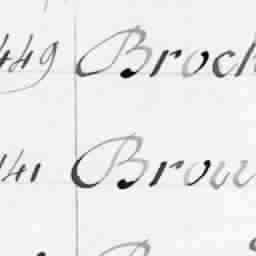 449 Broch
141 Brow